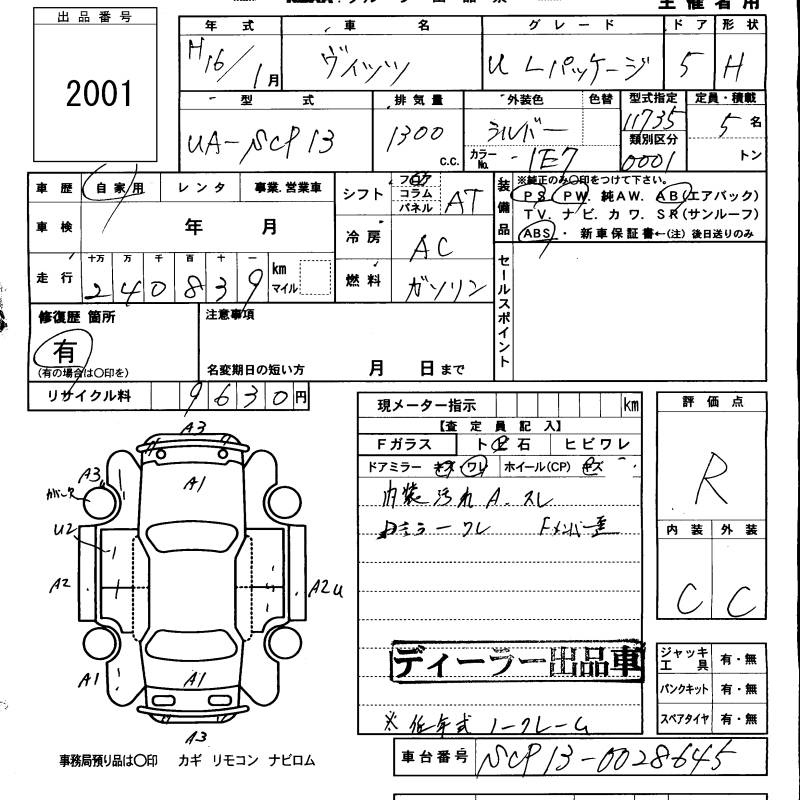 主催者用
出品番号
2001
年式 車名 グレード ドア 形状
H16/1月 ヴィッツ U Lパッケージ 5 H
型式 排気量 外装色 色替 型式指定 定員・積載
UA-SCP13 1300 c.c. シルバー 11735 5名
カラーNo. 1E7 類別区分 0001 トン
車歴 自家用 レンタ 事業.営業車
シフト フロア コラム パネル AT
装備品 ※純正のみ〇印をつけて下さい。
PS. PW. 純AW. AB(エアバック)
TV. ナビ. カワ. SR(サンルーフ)
ABS・ 新車保証書←(注)後日送りのみ
車検 年 月
冷房 AC
走行 十万 万 千 百 十 一 km マイル
240839
燃料 ガソリン
セールスポイント
修復歴 箇所
有
(有の場合は〇印を)
注意事項
名変期日の短い方 月 日まで
リサイクル料 9630円
現メーター指示 km
【査定員記入】
Fガラス ト石 ヒビワレ
ドアミラー キズ ワレ ホイール(CP) キズ
内装汚れA.スレ
ミラーワレ Fメンバー歪
ディーラー出品車
※低年式 ノークレーム
評価点
R
内装 外装
C C
ジャッキ工具 有・無
パンクキット 有・無
スペアタイヤ 有・無
A3
A3
A1
U2
A2
A2U
A1
A1
A3
事務局預り品は〇印 カギ リモコン ナビロム
車台番号 SCP13-0028645